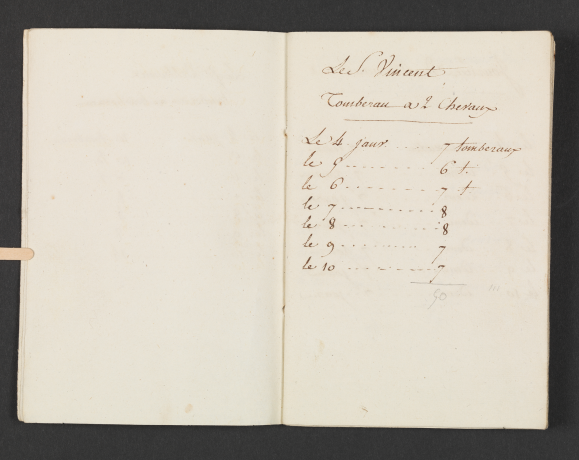 Le S. Vincent
Tomberau a 2 Chevaux
Le 4 janv ........ 7 tomberaux
le 5 ........ 6 t.
le 6 ........ 7 t
le 7 ........ 8
le 8 ........ 8
le 9 ........ 7
le 10 ........ 7
50